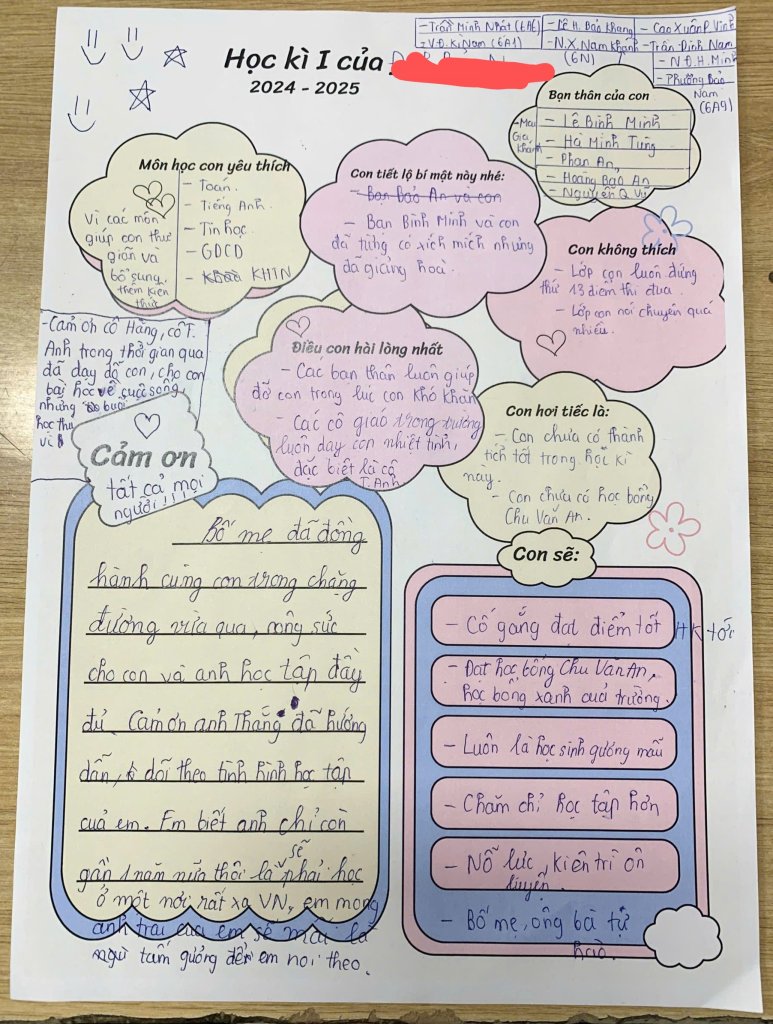 - Trần Minh Nhật (6A6)
- V.Đ. Kì Nam (6A1)
- Lê H. Bảo Khang
- N.X. Nam Khánh
(6N)
- Cao Xuân P. Vinh
- Trần Đình Nam
- N.Đ.H. Minh
- Phương Bảo
Nam
(6A9)
Học kì I của
2024 - 2025
Bạn thân của con
- Mai
Gia
Khánh
- Lê Bình Minh
- Hà Minh Tùng
- Phan An
- Hoàng Bảo An
- Nguyễn Q Vũ
Môn học con yêu thích
Vì các môn
giúp con thư
giãn và
bổ sung
thêm kiến
thức
- Toán.
- Tiếng Anh.
- Tin học.
- GDCD
- KHTN
Con tiết lộ bí mật này nhé:
- Bạn Bảo An và con
- Bạn Bình Minh và con
đã từng có xích mích nhưng
đã giảng hoà.
Con không thích
- Lớp con luôn đứng
thứ 13 điểm thi đua.
- Lớp con nói chuyện quá
nhiều.
- Cảm ơn cô Hằng, cô T.
Anh trong thời gian qua
đã dạy dỗ con, cho con
bài học về cuộc sống,
những buổi
học thú
vị
Điều con hài lòng nhất
- Các bạn thân luôn giúp
đỡ con trong lúc con khó khăn
- Các cô giáo trong trường
luôn dạy con nhiệt tình,
đặc biệt là cô
T. Anh
Con hơi tiếc là:
- Con chưa có thành
tích tốt trong học kì
này.
- Con chưa có học bổng
Chu Văn An.
Cảm ơn
tất cả mọi
người!!!!
Bố mẹ đã đồng
hành cùng con trong chặng
đường vừa qua, công sức
cho con và anh học tập đầy
đủ. Cảm ơn anh Thắng đã hướng
dẫn, dõi theo tình hình học tập
của em. Em biết anh chỉ còn
gần 1 năm nữa thôi là sẽ phải học
ở một nơi rất xa VN, em mong
anh trai của em sẽ mãi là
ngừ tấm gương để em noi theo.
Con sẽ:
- Cố gắng đạt điểm tốt HK tới
- Đạt học bổng Chu Văn An,
học bổng xanh của trường.
- Luôn là học sinh gương mẫu
- Chăm chỉ học tập hơn
- Nỗ lực, kiên trì ôn
luyện.
- Bố mẹ, ông bà tự
hào.